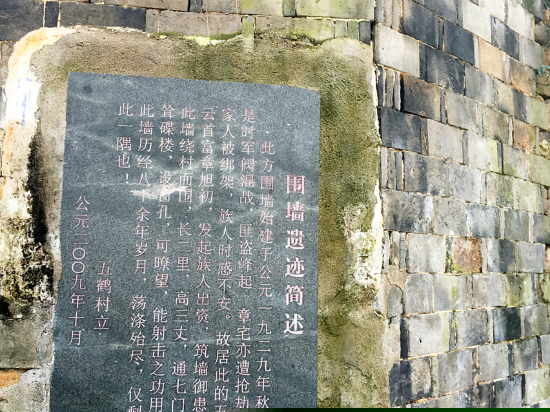 围墙遗迹简述
此方围墙始建于公元一九二九年秋
是时军阀混战，匪盗峰起，章宅亦遭抢劫
家人被绑架，族人时感不安。故居此的五
云首富章旭初，发起族人出资，筑墙御患
此墙绕村而围，长二里，高三丈，通七门
耸碟楼，设 孔，可瞭望，能射击之功用
此墙历经八十余年岁月，荡涤殆尽，仅剩
此一隅也！
五鹤村立
公元二〇〇九年十月